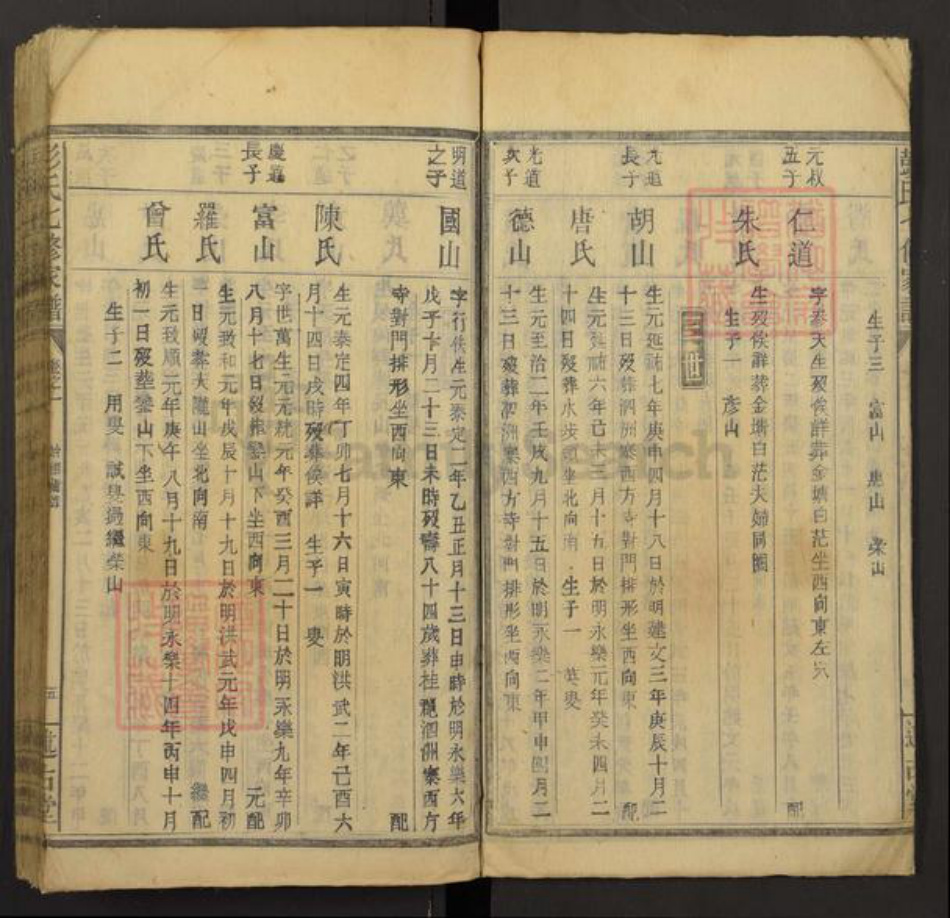 生子三 富山 惠山 荣山
元叔五子 仁道 字泰天生歿俟詳葬金塘白茫坐西向東左穴 配
朱氏 生歿俟詳葬金塘白茫夫婦同塋
生子一 彥山
三世
九道長子 胡山 生元延祐七年庚申四月十八日於明建文三年庚辰十月二
十三日歿葬泗洲寨西方寺對門排形坐西向東 配
唐氏 生元延祐六年己未三月十五日於明永樂元年癸未四月二
十四日歿葬水步頭坐北向南 生子一 英叟
光道次子 德山 生元至治二年壬戌九月十五日於明永樂二年甲申四月二
十三日歿葬泗洲寨西方寺對門排形坐西向東
明道之子 國山 字行佚生元泰定二年乙丑正月十三日申時於明永樂六年
戊子十月二十三日未時歿壽八十四歲葬桂龍泗洲寨西方
寺對門排形坐西向東 配
陳氏 生元泰定四年丁卯七月十六日寅時於明洪武二年己酉六
月十四日戌時歿葬俟詳 生子一 叟
慶道長子 富山 字世萬生元元統元年癸酉三月二十日於明永樂九年辛卯
八月十七日歿葬鑾山下坐西向東 元配
羅氏 生元致和元年戊辰十月十九日於明洪武元年戊申四月初
一日歿葬大隴山坐北向南 繼配
曾氏 生元致順元年庚午八月十九日於明永樂十四年丙申十月
初一日歿葬鑾山下坐西向東
生子二 用叟 誠叟過繼榮山
彭氏七修家譜 卷之一 五